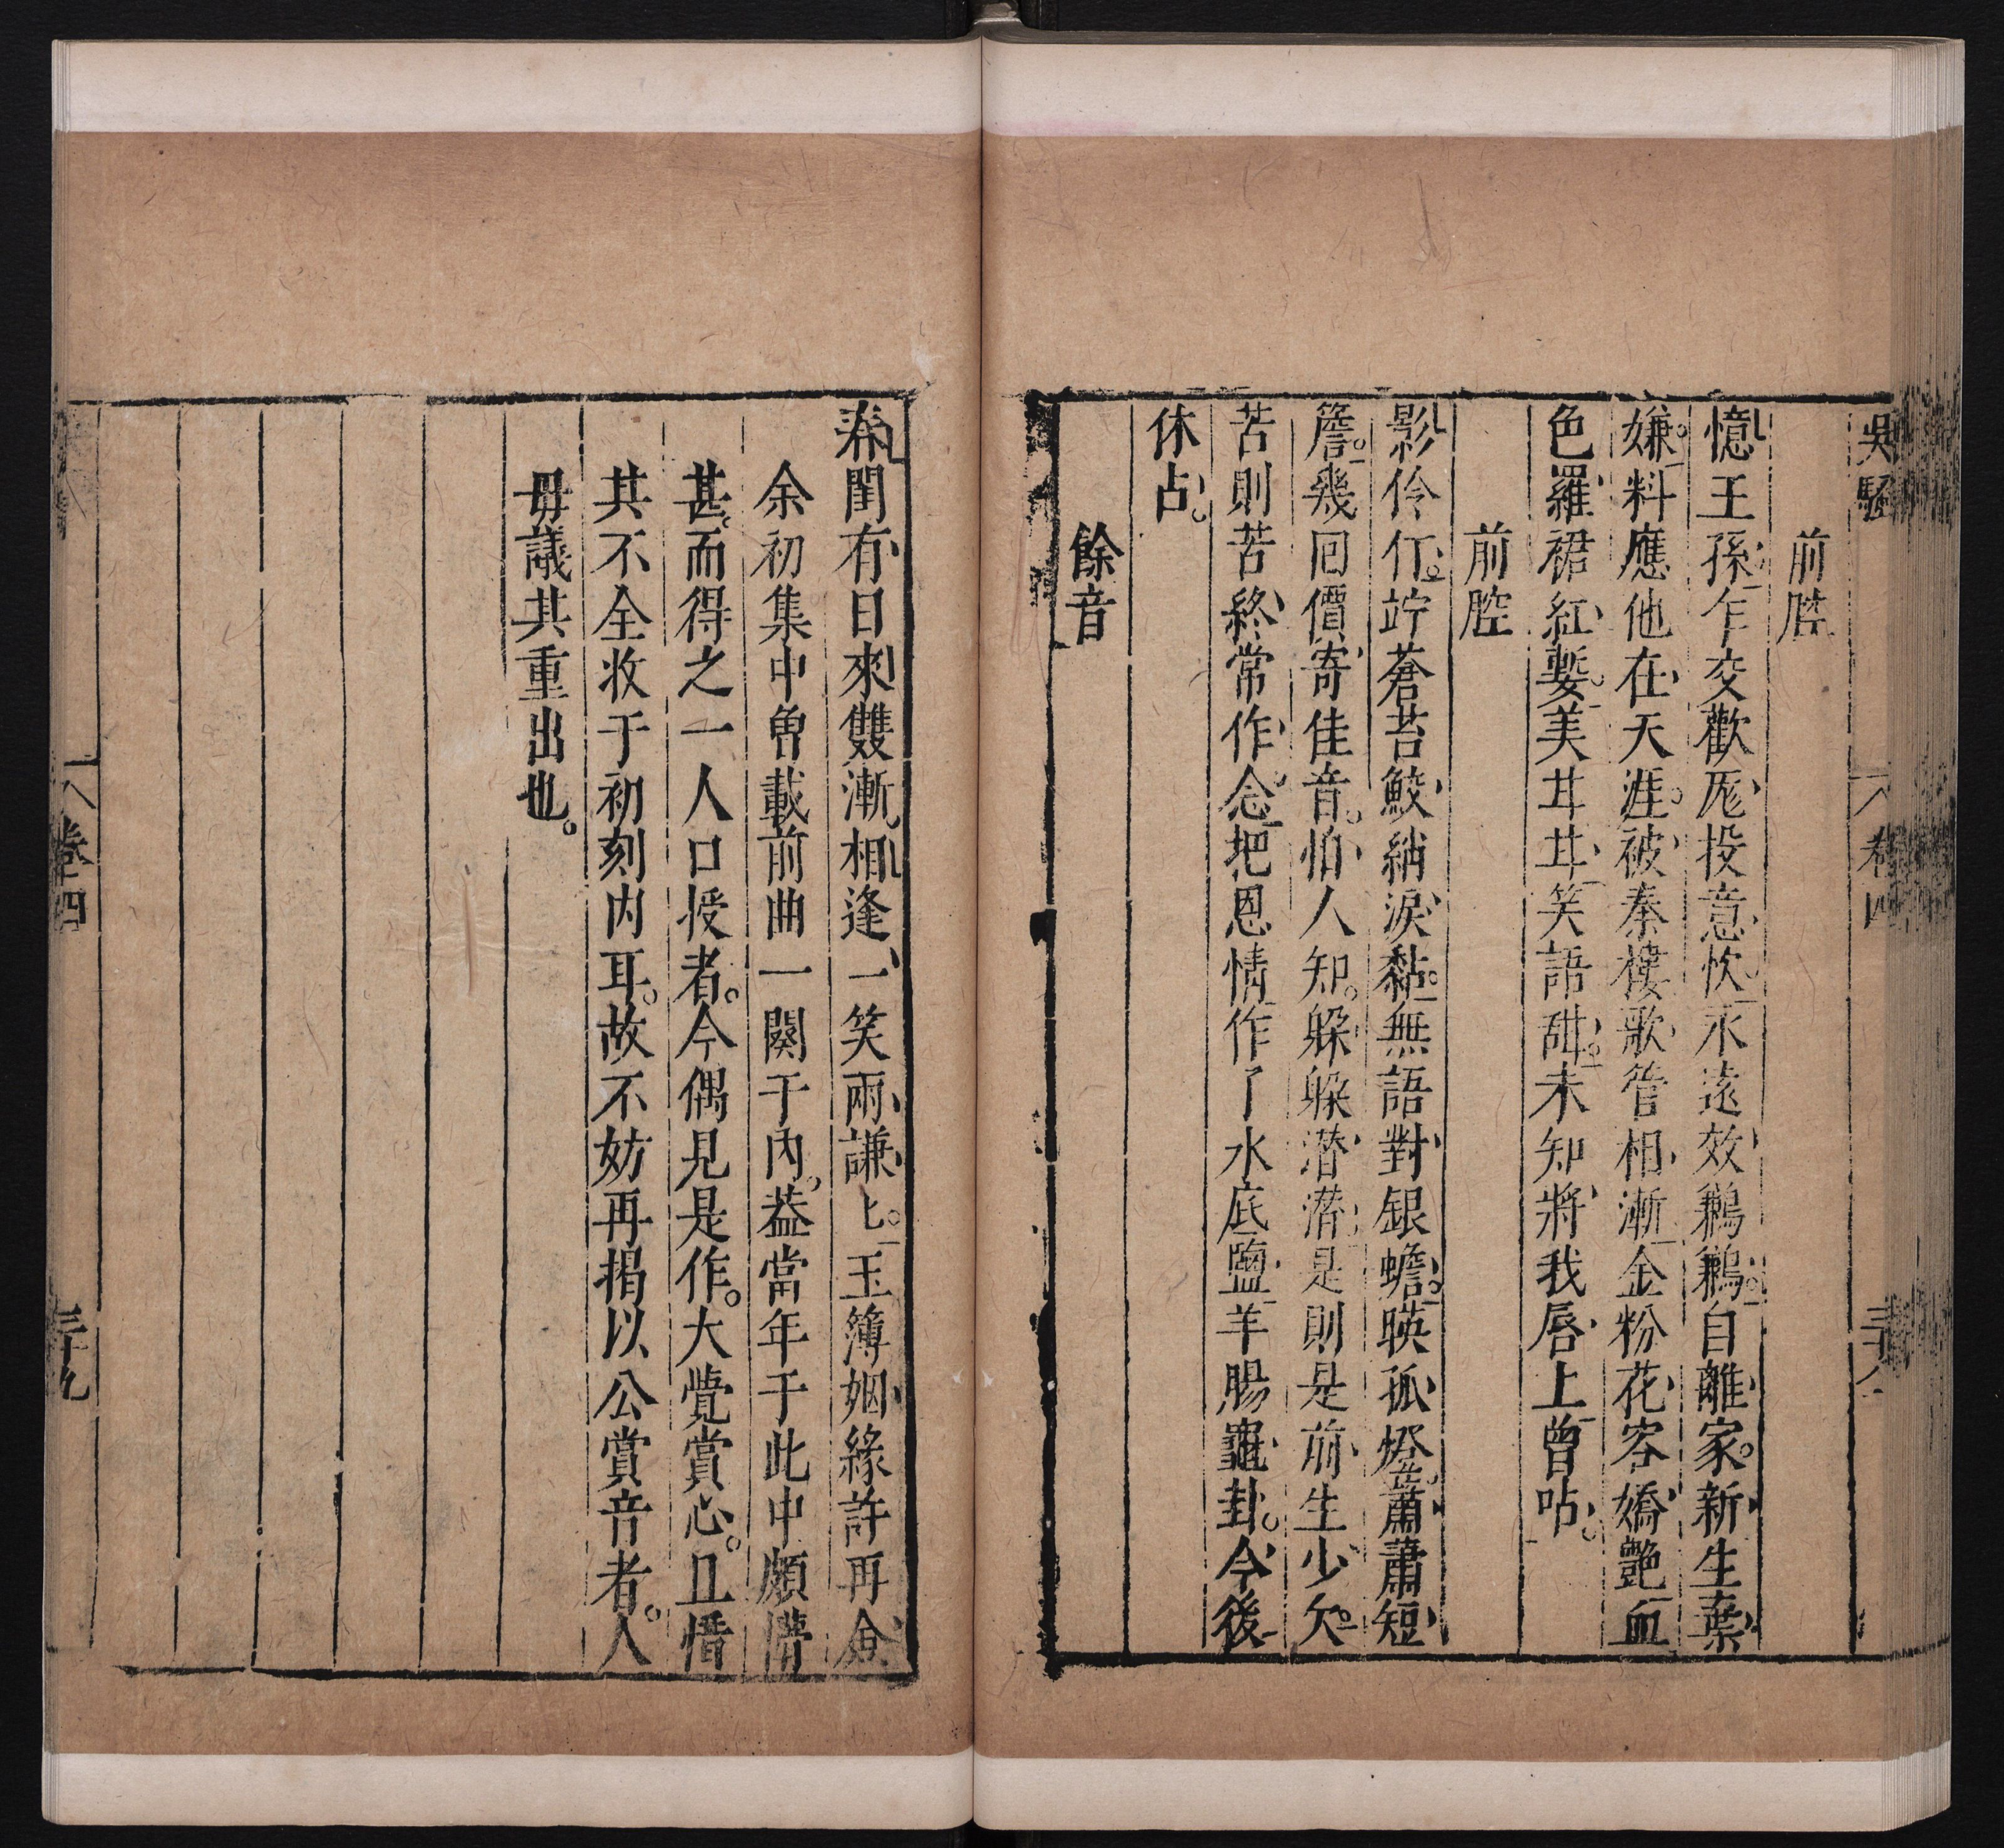 吳騷
卷四
三十八
前腔
憶王孫乍交歡厖投意忺永遠效鶼鶼自離家新生棄
嫌料應他在天涯被秦樓歌管相漸金粉花容嬌艷血
色羅裙紅鏨美芷芷笑語甜未知將我唇上曾呫
前腔
影伶仃竚蒼苔鮫綃淚黏無語對銀蟾暎孤燈蕭蕭短
簷幾囘價寄佳音怕人知躲躲潛潛是則是前生少欠
苦則苦終常作念把恩情作了水底鹽羊腸龜卦今後
休占
餘音
春閨有日來雙漸相逢一笑兩謙上玉簿姻緣許再僉
余初集中曾載前曲一闋于內葢當年于此中頗懵
甚而得之一人口授者今偶見是作大覺賞心且惜
其不全收于初刻內耳故不妨再揭以公賞音者人
毋議其重出也
卷四
三十九